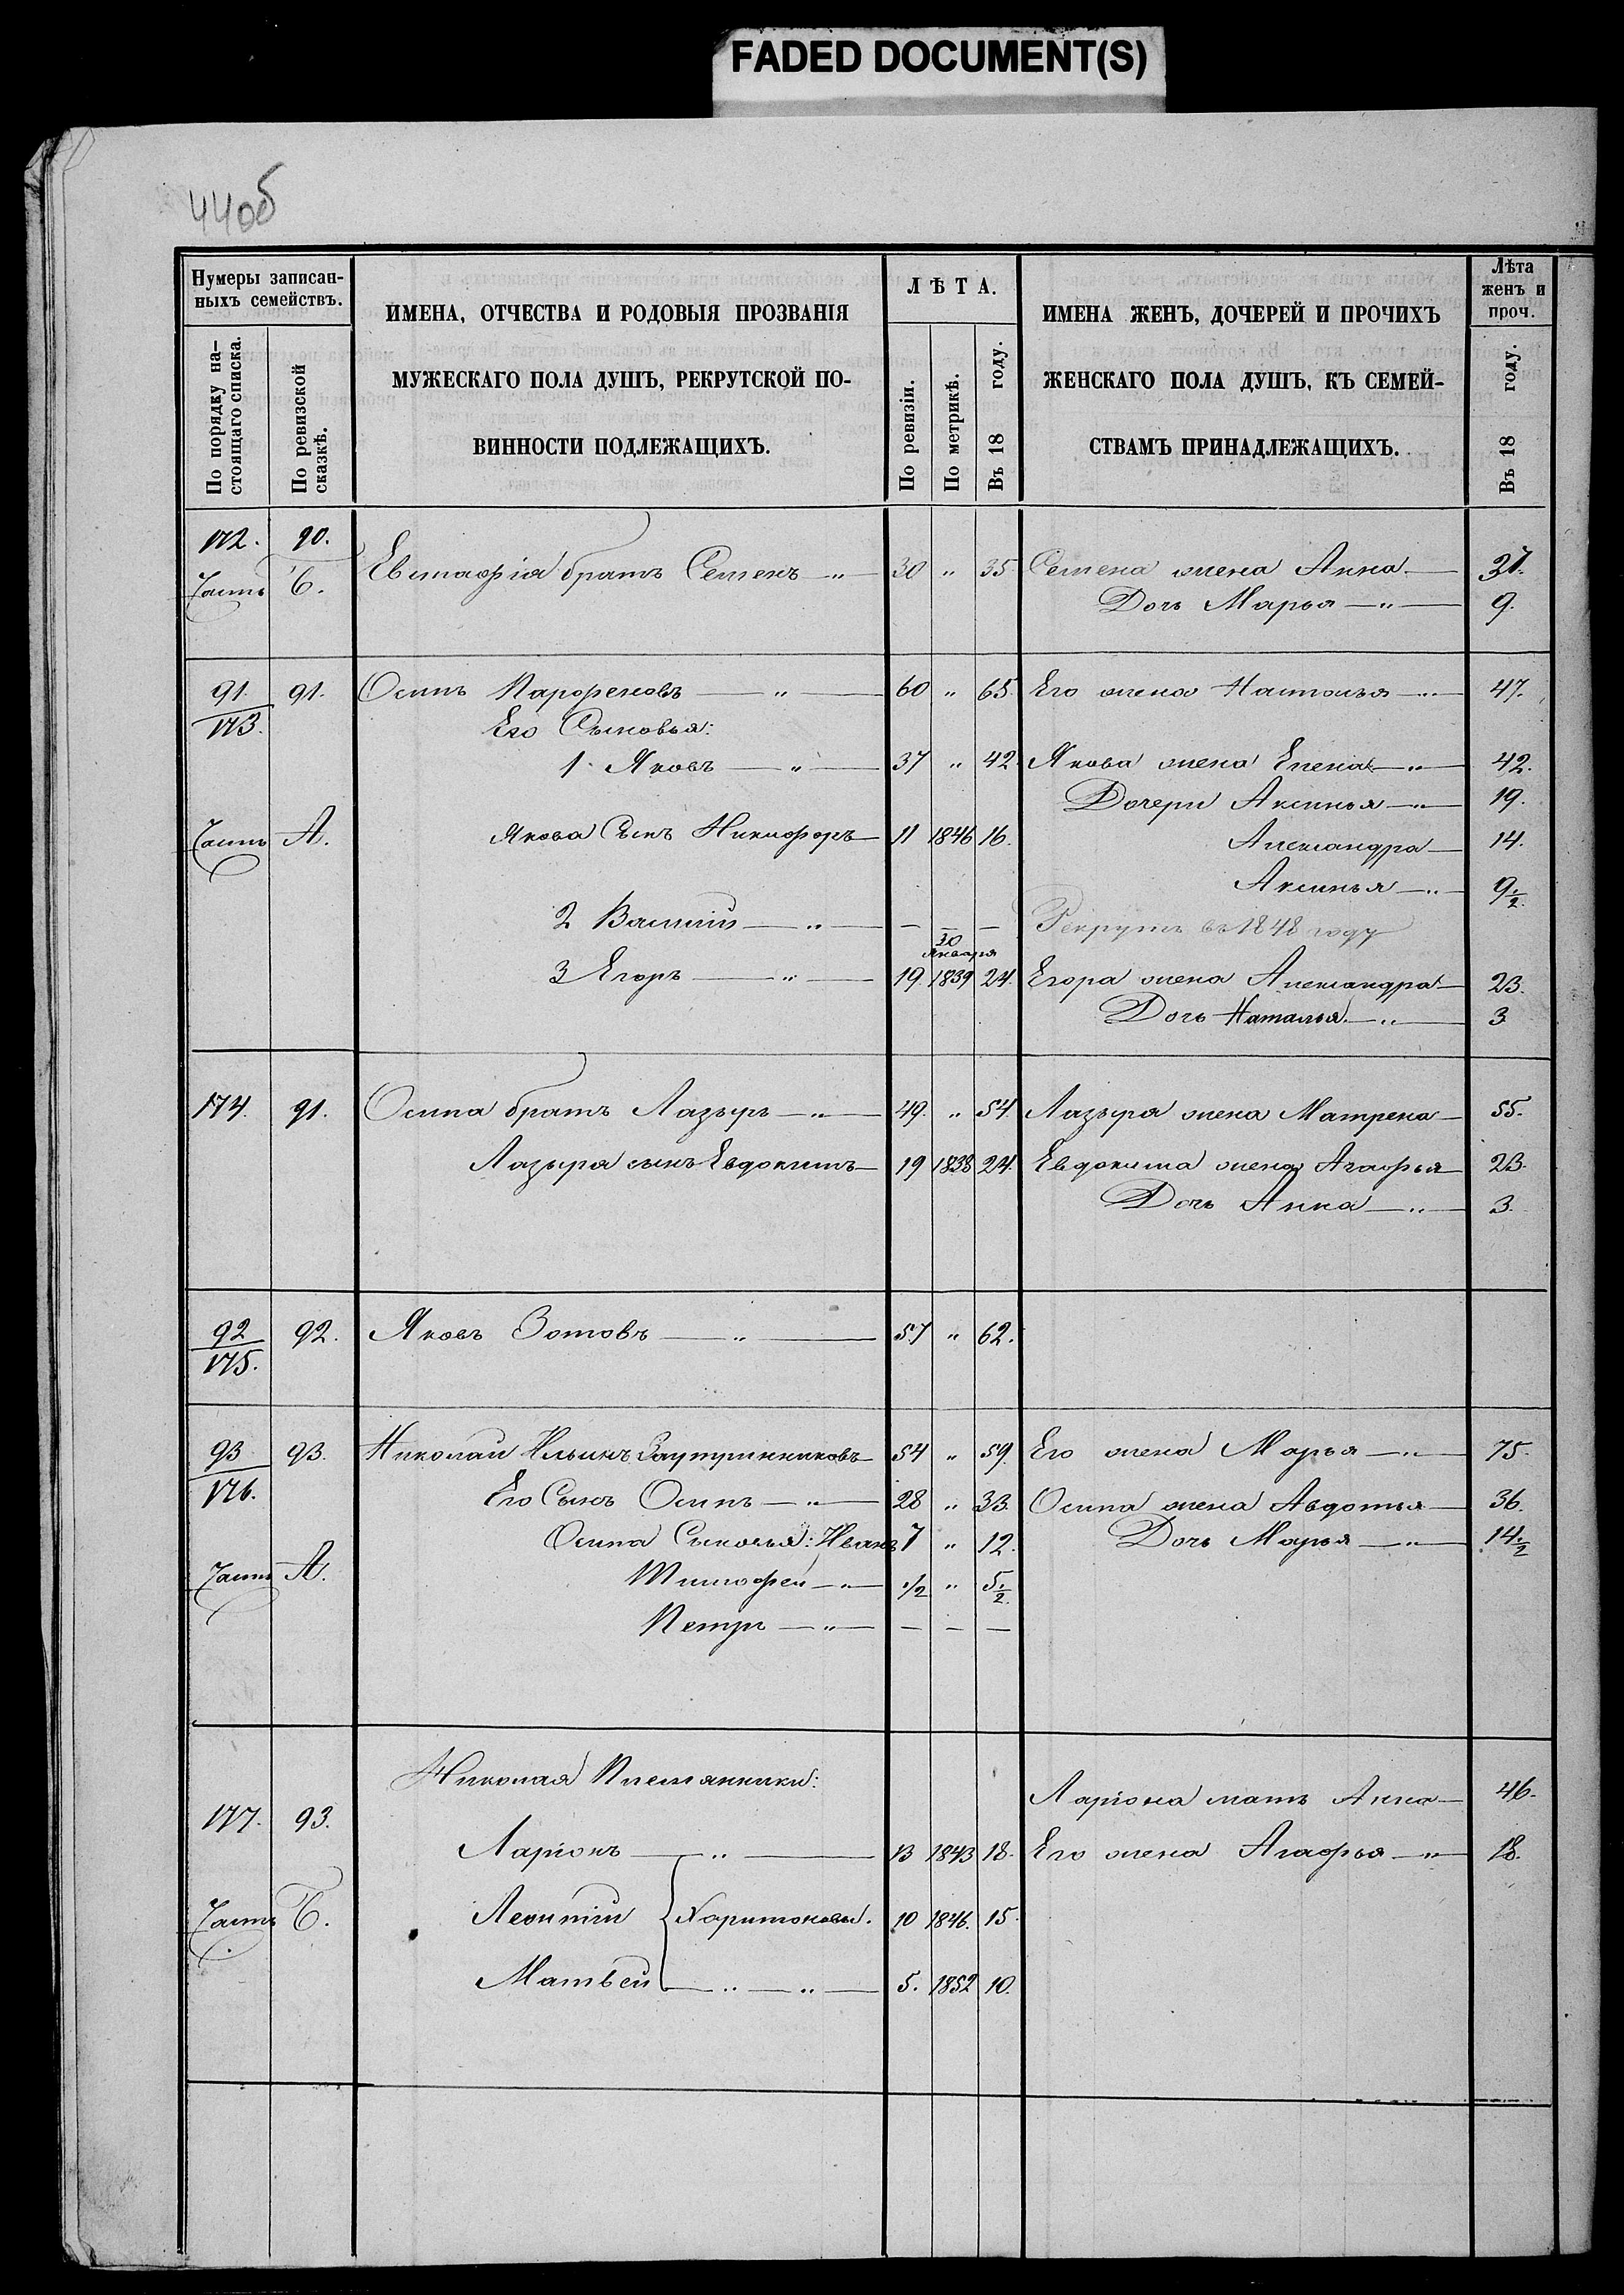 FADED DOCUMENT(S)
44об
Нумеры записан-
ныхъ семействъ.
По порядку на-
стоящаго списка.
По ревизской
сказкѣ.
ИМЕНА, ОТЧЕСТВА И РОДОВЫЯ ПРОЗВАНІЯ
МУЖЕСКАГО ПОЛА ДУШЪ, РЕКРУТСКОЙ ПО-
ВИННОСТИ ПОДЛЕЖАЩИХЪ.
ЛѢТА.
По ревизіи.
По метрикѣ.
Въ 18 году.
ИМЕНА ЖЕНЪ, ДОЧЕРЕЙ И ПРОЧИХЪ
ЖЕНСКАГО ПОЛА ДУШЪ, КЪ СЕМЕЙ-
СТВАМЪ ПРИНАДЛЕЖАЩИХЪ.
Лѣта
женъ и
проч.
Въ 18 году.
172. 90.
Часть Б. Евстафія братъ Семенъ — " — 30 " 35 Семена жена Анна — 37.
Дочь Марья — " — 9.
91. 91. Осипъ Парфеновъ — " — 60 " 65. Его жена Наталья — " — 47.
173. Его Сыновья:
1. Яковъ — " — 37 " 42. Якова жена Елена — " — 42.
Дочери Аксинья — " — 19.
Часть А. Якова Сынъ Никифоръ — 11 1846 16. Александра — 14.
Аксинья — " — 9 1/2.
2 Василий — " — — — — Рекрутъ въ 1848 году
30
января
3 Егоръ — " — 19. 1839 24. Егора жена Александра — 23.
Дочь Наталья. — " — 3
174. 91. Осипа братъ Лазырь — " — 49. " 54. Лазыря жена Матрена — 55.
Лазыря сынъ Евдокимъ — 19 1838 24. Евдокима жена Агафья — 23.
Дочь Анна — " — 3.
92 92. Яковъ Зотовъ — " — 57 " 62.
175.
93 93. Николай Ильинъ Заутринниковъ — 54 " 59. Его жена Марья — " — 75.
176. Его Сынъ Осипъ — " — 28 " 33. Осипа жена Авдотья — 36.
Осипа Сыновья: Иванъ 7 " 12. Дочь Марья — " — 14 1/2
Часть А. Тимофей — " — 1/2 " 5 1/2.
Петръ — " — — — —
Николая Племянники:
Ларіона мать Анна — 46.
177. 93.
Ларіонъ — " — 13 1843 18. Его жена Агафья — " — 18.
Часть Б. Леонтій { Харитоновы. 10 1846. 15.
Матвей — " — " — 5. 1852 10.